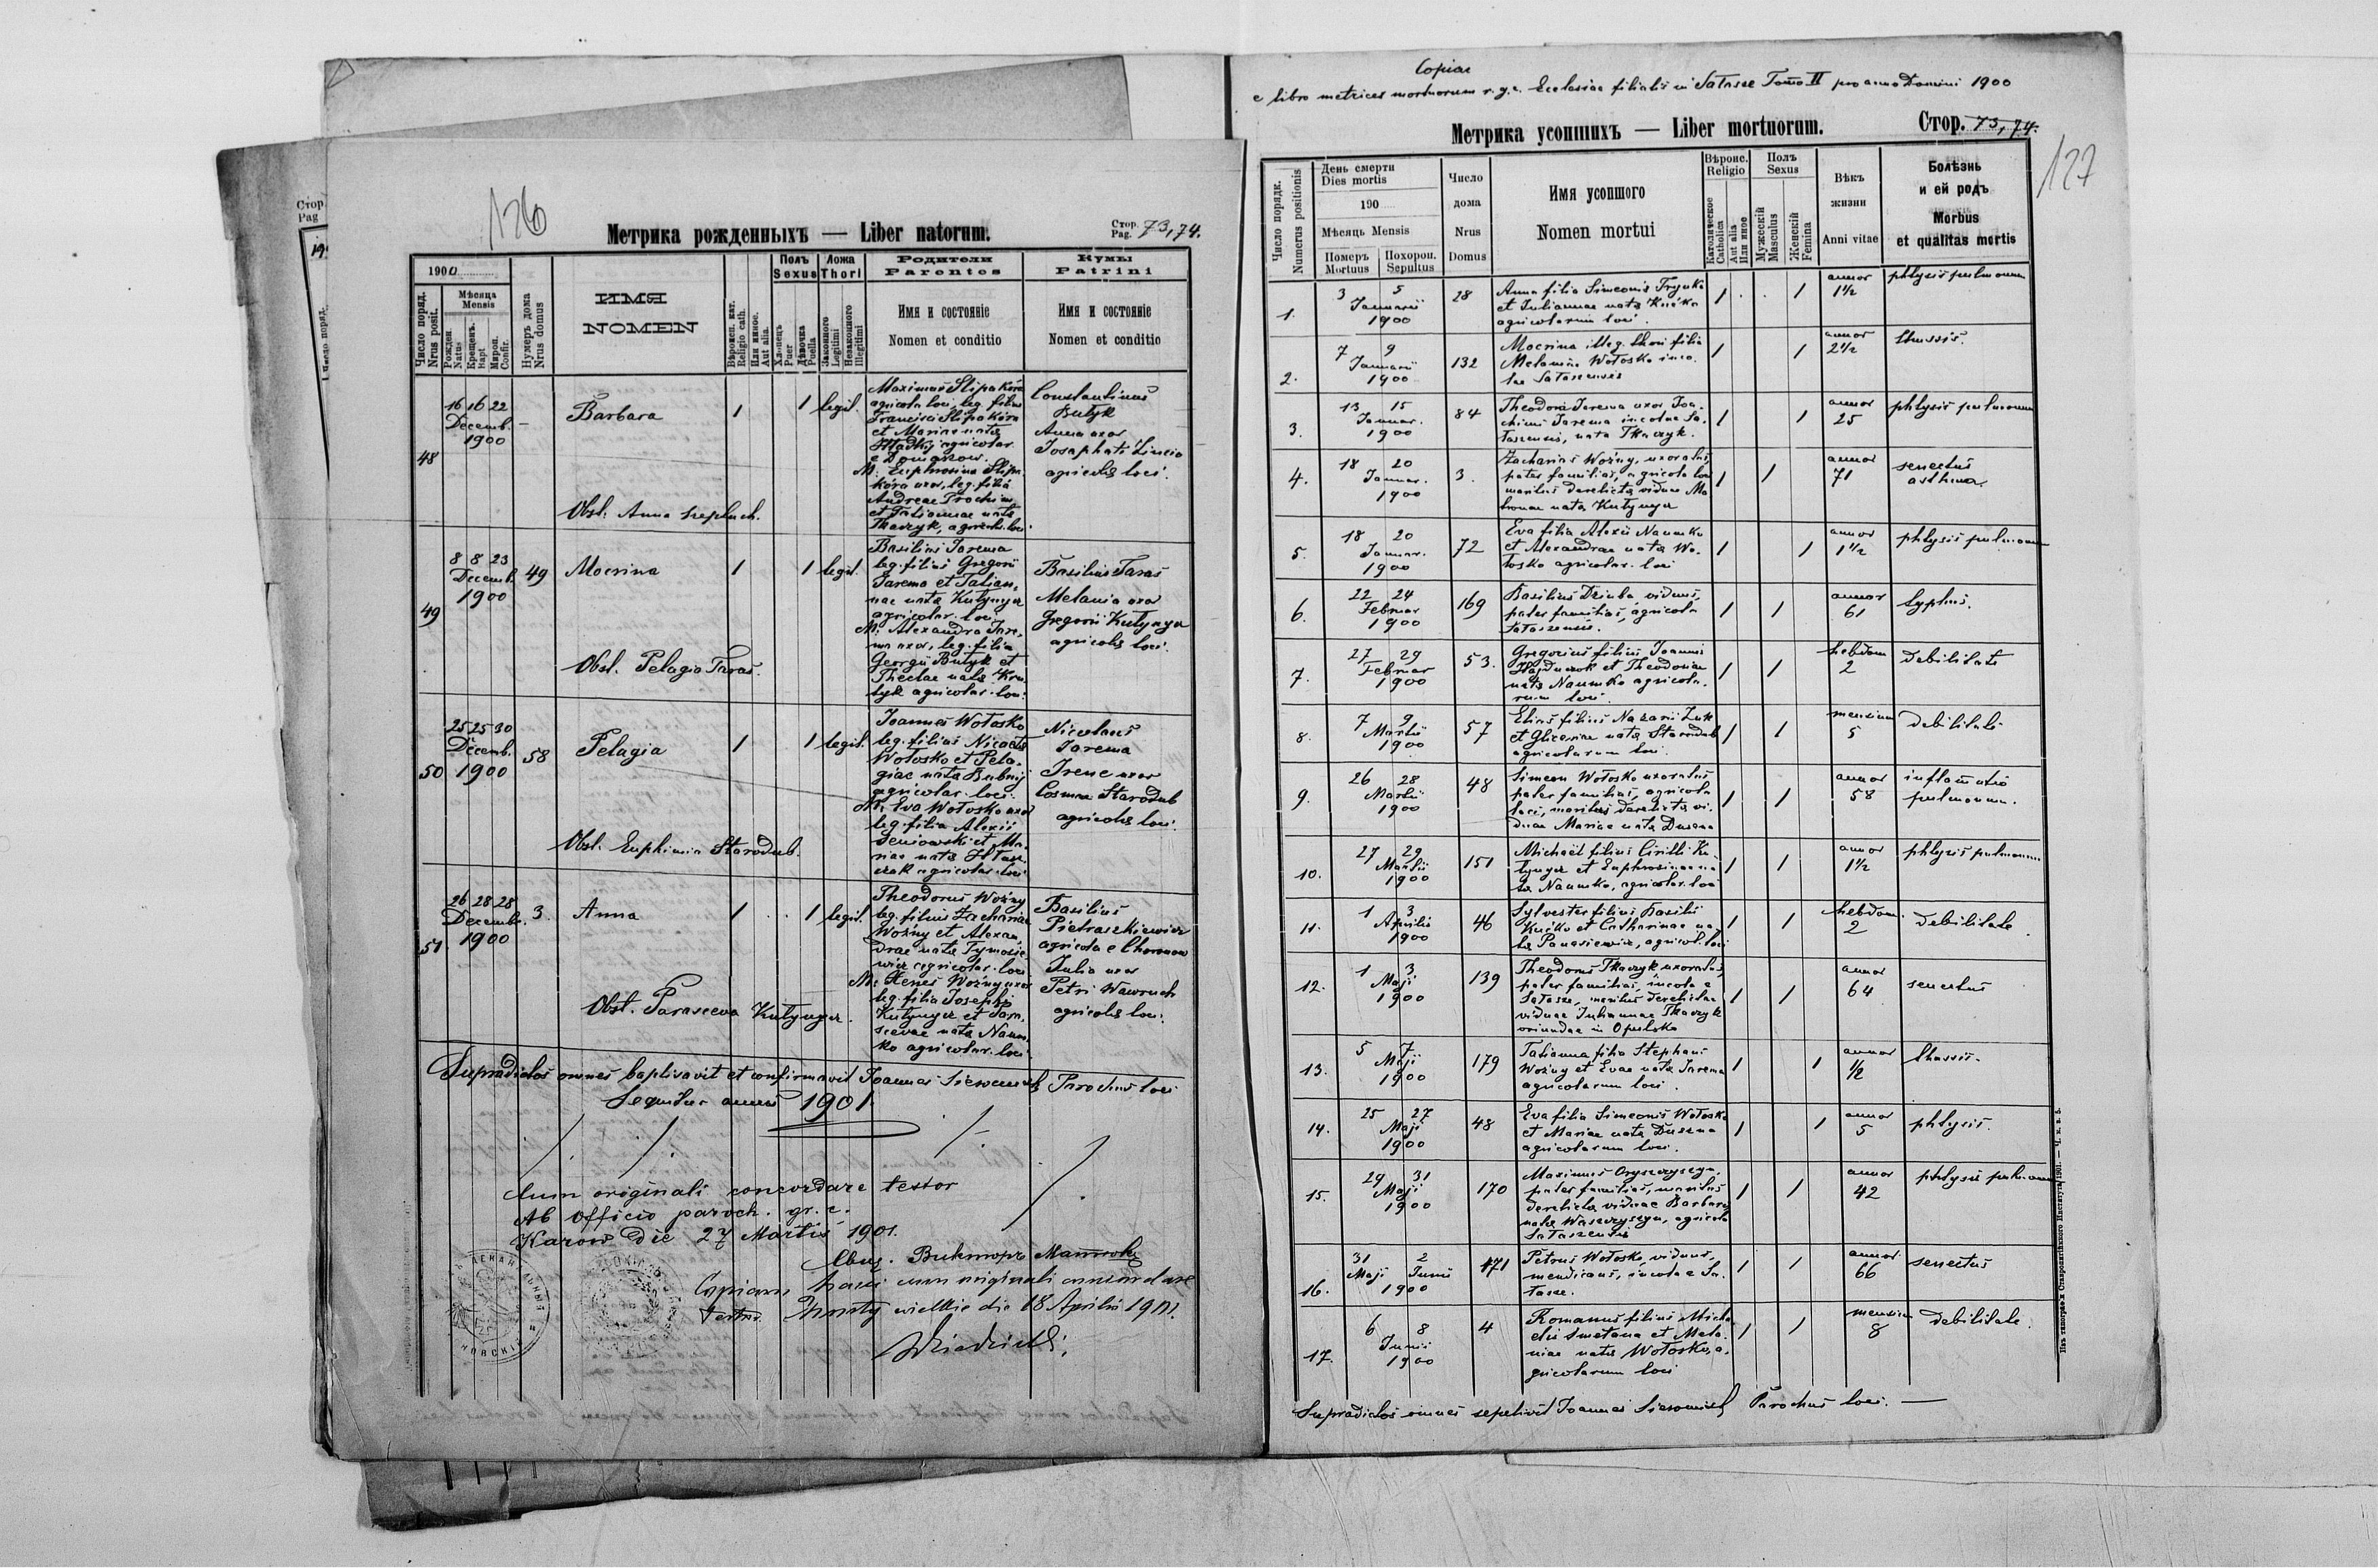 Стор.
Pag
126
Метрика рожденныхъ — Liber natorum.
Стор. Pag. 73, 74.
1900
Число поряд. Nrus posit.
Мѣсяца Mensis
Рожден Natus
Крещенъ. Bapt
Мѵроп. Confir.
Нумеръ дома Nrus domus
ИМЯ
NOMEN
Вѣроисп. кат. Religio cath.
Или инное. Aut alia.
Полъ Sexus
Хлопецъ Puer
Дѣвочка Puella
Ложа Thori
Законного Legitimi
Незаконного Illegitimi
Родители
Parentes
Имя и состоянiе
Nomen et conditio
Кумы
Patrini
Имя и состоянiе
Nomen et conditio
48
16 16 22
Decemb.
1900
–
Barbara
1
1
legit.
Maximus Slipakóra
agricola loci, leg. filius
Francisci Slipakóra
et Mariae nata
Hładkij agricolar.
e Domaszow.
M: Euphrosina Slipa
kóra uxor, leg. filia
Andreae Prochim
et Tatianae nata
Tkaczyk, agricol. loci
Constantinus
Butyk
Anna uxor
Josaphati
agricolae loci.
Obst. Anna
49
8 8 23
Decemb.
1900
49
Mocrina
1
1
legit.
Basilius Jarema
leg. filius Gregorii
Jarema et Tatian
nae nata Kutynyer
agricolar. loci
M: Alexandra Jare
ma uxor, leg. filia
Georgii Butyk et
Theclae nata
agricolar. loci.
Basilius Taras
Melania uxor
Gregorii Kutynyer
agricolae loci.
Obst. Pelagia Taras.
50
25 25 30
Decemb.
1900
58
Pelagia
1
1
legit.
Joannes Wołosko
leg. filius Nicolai
Wołosko et Pela
giae nata Bubnij
agricolar. loci.
M: Eva Wołosko uxor
leg. filia Alexii
Seniowski et Ma
riae nata
agricolar. loci
Nicolaus
Jarema
Irene uxor
Cosmae Starodub
agricolae loci.
Obst. Euphimia Starodub.
51
26 28 28
Decemb.
1900
3.
Anna
1
1
legit.
Theodorus Woźny
leg. filius Zachariae
Woźny et Alexan
drae nata Tymosie
wicz agricolar. loci
M: Xenes Woźny uxor
leg. filia Josephi
Kutynyer et Para
scevae nata Naum
ko agricolar. loci.
Basilius
Pietraszkiewicz
agricola e
Julia uxor
Petri Wawruch
agricolae loci.
Obst. Parasceva Kutynyer.
Supradictos omnes baptisavit et confirmavit Joannes Parochus loci
Sequitur annus 1901.
Cum originali concordare testor
Ab officio paroch. gr. c.
Karow die 27 Martii 1901.
Copiam hanc cum originali concordare
testor. Mosty wielkie die 18 Aprilis 1901.
Copiae
e libro metrices mortuorum r. g. c. Ecclesiae filialis in Sałasze Tomo II pro anno Domini 1900
Метрика усопшихъ — Liber mortuorum.
Стор. 73, 74.
127
Число порядк. Numerus positionis
День смерти
Dies mortis
190
Мѣсяць Mensis
Померъ Mortuus
Похорон. Sepultus
Число
дома
Nrus
Domus
Имя усопшого
Nomen mortui
Вѣроис. Religio
Католическое Catholica
Aut alia Или иное
Полъ Sexus
Мужескiй Masculus
Женскiй Femina
Вѣкъ
жизни
Anni vitae
Болѣзнь
и ей родъ
Morbus
et qualitas mortis
1.
3 5
Januarii
1900
28
Anna filia Simeonis Hrynko
et Julianae nata Kućko
agricolarum loci.
1
1
annor
1½
phtysis pulmonum
2.
7 9
Januarii
1900
132
Mocrina illeg. thori filia
Melaniae Wołosko inco
lae Sałaszensis
1
1
annor
2½
thussis.
3.
13 15
Januar.
1900
84
Theodora Jarema uxor Joa
chimi Jarema incolae Sa
łaszensis, nata Tkaczyk.
1
1
annor
25
phtysis pulmonum
4.
18 20
Januar.
1900
3.
Zacharias Woźny, uxoratus,
pater familias, agricola loci
maritus derelictae viduae Ma
tronae nata Kutynyer
1
1
annor
71
senectus
asthma.
5.
18 20
Januar.
1900
72
Eva filia Alexii Naumko
et Alexandrae nata Wo
łosko agricolar. loci
1
1
annor
1½
phtysis pulmonum
6.
22 24
Februar
1900
169
Basilius Dziuba viduus,
pater familias, agricola
Sałaszensis.
1
1
annor
61
typhus.
7.
27 29
Februar
1900
53.
Gregorius filius Joannis
Hajduczok et Theodorae
nata Naumko agricola
rum loci.
1
1
hebdom
2
debilitate
8.
7 9
Martii
1900
57
Elias filius Nazarii Łuk
et Gliceriae nata Starodub
agricolarum loci.
1
1
mensium
5
debilitate
9.
26 28
Martii
1900
48
Simeon Wołosko uxoratus
pater familias, agricola
loci, maritus derelictae vi
duae Mariae nata Duszna
1
1
annor
58
inflamatio
pulmonum.
10.
27 29
Martii
1900
151
Michaël filius Cirilli Ku
tynyer et Euphrosinae na
ta Naumko, agricolar. loci
1
1
annor
1½
phtysis pulmonum
11.
1 3
Aprilis
1900
46
Sylvester filius Basilii
Kućko et Catharinae na
ta Panasiewicz, agricol. loci
1
1
hebdom.
2
debilitate.
12.
1 3
Maji
1900
139
Theodorus Tkaczyk uxoratus,
pater familias, incola e
Sałasze, maritus derelictae
viduae Julianae Tkaczyk
oriundae in Opulsko
1
1
annor
64
senectus
13.
5 7
Maji
1900
179
Tatianna filia Stephani
Woźny et Evae nata Jarema
agricolarum loci.
1
1
annor
½
thussis.
14.
25 27
Maji
1900
48
Eva filia Simeonis Wołosko
et Mariae nata Duszna
agricolarum loci.
1
1
annor
5
phtysis.
15.
29 31
Maji
1900
170
Maximus Oryszczyszyn,
pater familias, maritus
derelictae viduae Barbarae
nata Waszczyszyn, agricola
Sałaszensis
1
1
annor
42
phtysis pulmonum
16.
31 2
Maji Junii
1900
171
Petrus Wołosko, viduus,
mendicans, incola e Sa
łasze.
1
1
annor.
66
senectus
17.
6 8
Junii
1900
4
Romanus filius Micha
elis Smetana et Mela
niae nata Wołosko, a
gricolarum loci
1
1
mensium
8
debilitate.
Supradictos omnes sepelivit Joannes Parochus loci.